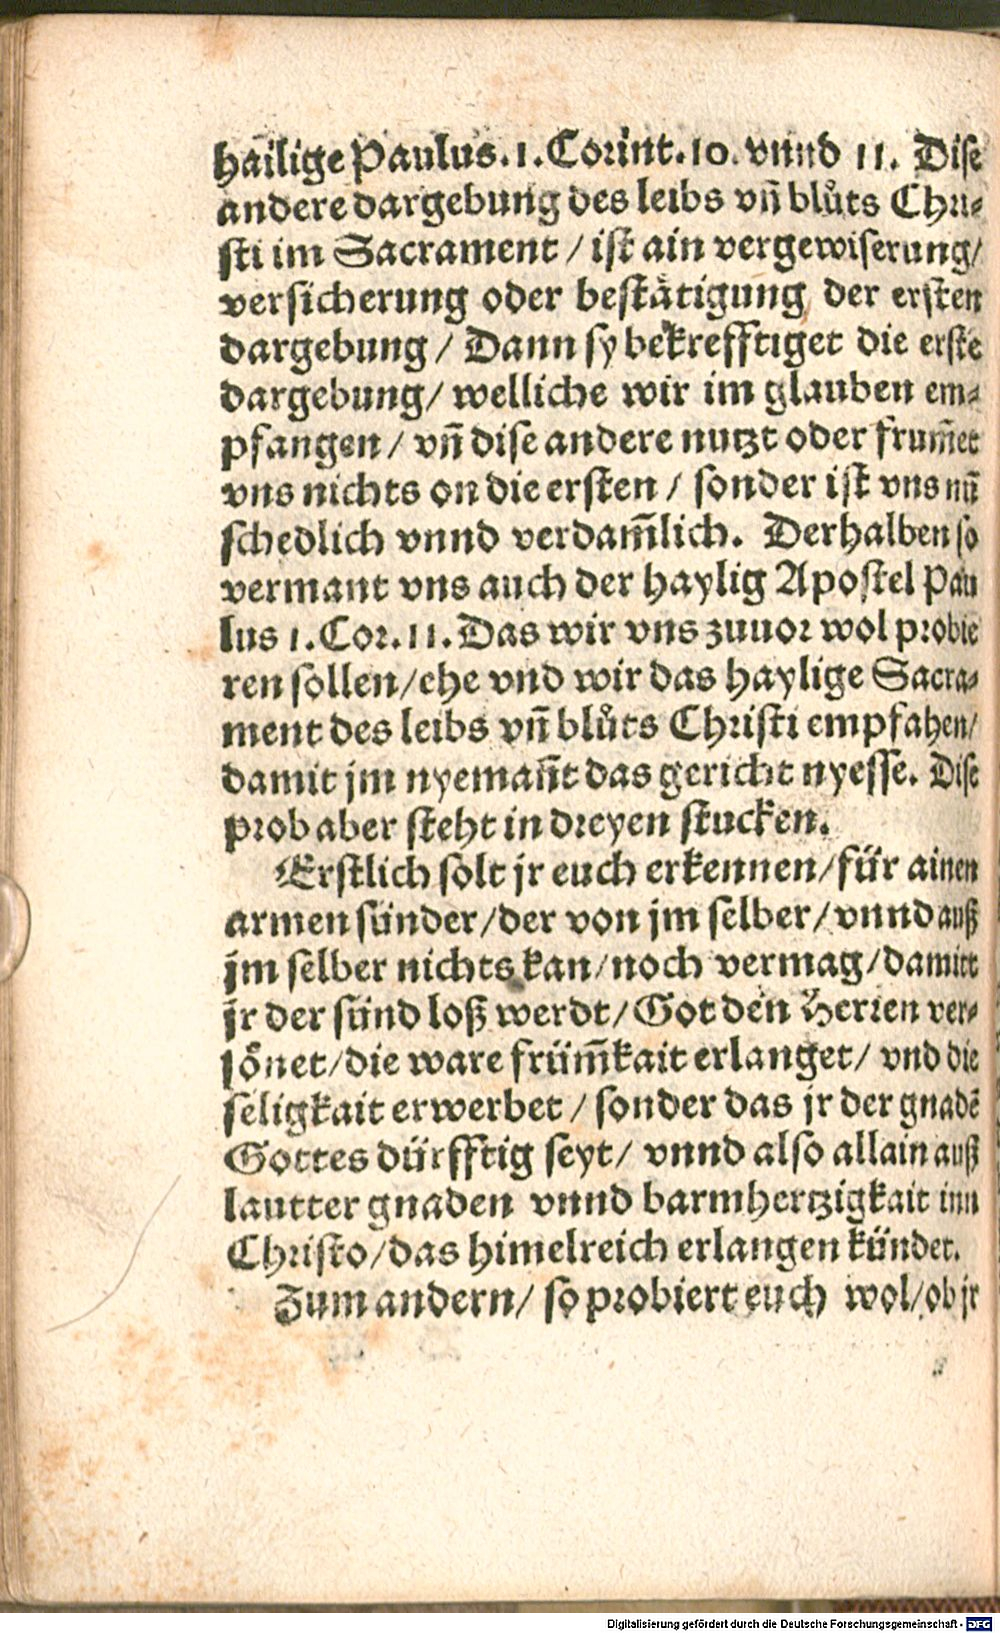 hailige Paulus. 1. Corint. 10. vnnd 11. Dise
andere dargebung des leibs vn̄ blůts Chri⸗
sti im Sacrament / ist ain vergewiserung/
versicherung oder bestätigung der ersten
dargebung / Dann sy bekrefftiget die erste
dargebung/ welliche wir im glauben em⸗
pfangen / vn̄ dise andere nutzt oder frum̄et
vns nichts on die ersten / sonder ist vns nū
schedlich vnnd verdam̄lich. Derhalben so
vermant vns auch der haylig Apostel Pau
lus 1. Cor. 11. Das wir vns zuuor wol probie
ren sollen/ehe vnd wir das haylige Sacra⸗
ment des leibs vn̄ blůts Christi empfahen/
damit jm nyeman̄t das gericht nyesse. Dise
prob aber steht in dreyen stucken.
Erstlich solt jr euch erkennen/für ainen
armen sünder/der von jm selber/vnnd auß
jm selber nichts kan/noch vermag/damitt
jr der sünd loß werdt/Got den Herren ver⸗
sönet/die ware früm̄kait erlanget/ vnd die
seligkait erwerbet / sonder das jr der gnadē
Gottes dürfftig seyt/ vnnd also allain auß
lautter gnaden vnnd barmhertzigkait inn
Christo/das himelreich erlangen kündet.
Zum andern/ so probiert euch wol/ob jr
Digitalisierung gefördert durch die Deutsche Forschungsgemeinschaft - DFG